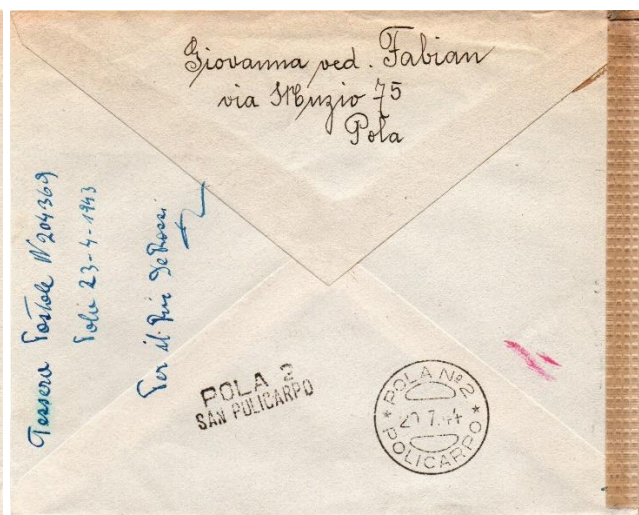 Giovanna ved. Fabian
via Muzio 75
Pola
Tessera Postale N 204369
Pola 23-4-1943
Per il De Rossi
POLA 2
SAN POLICARPO
POLA Nº 2
7.44
POLICARPO